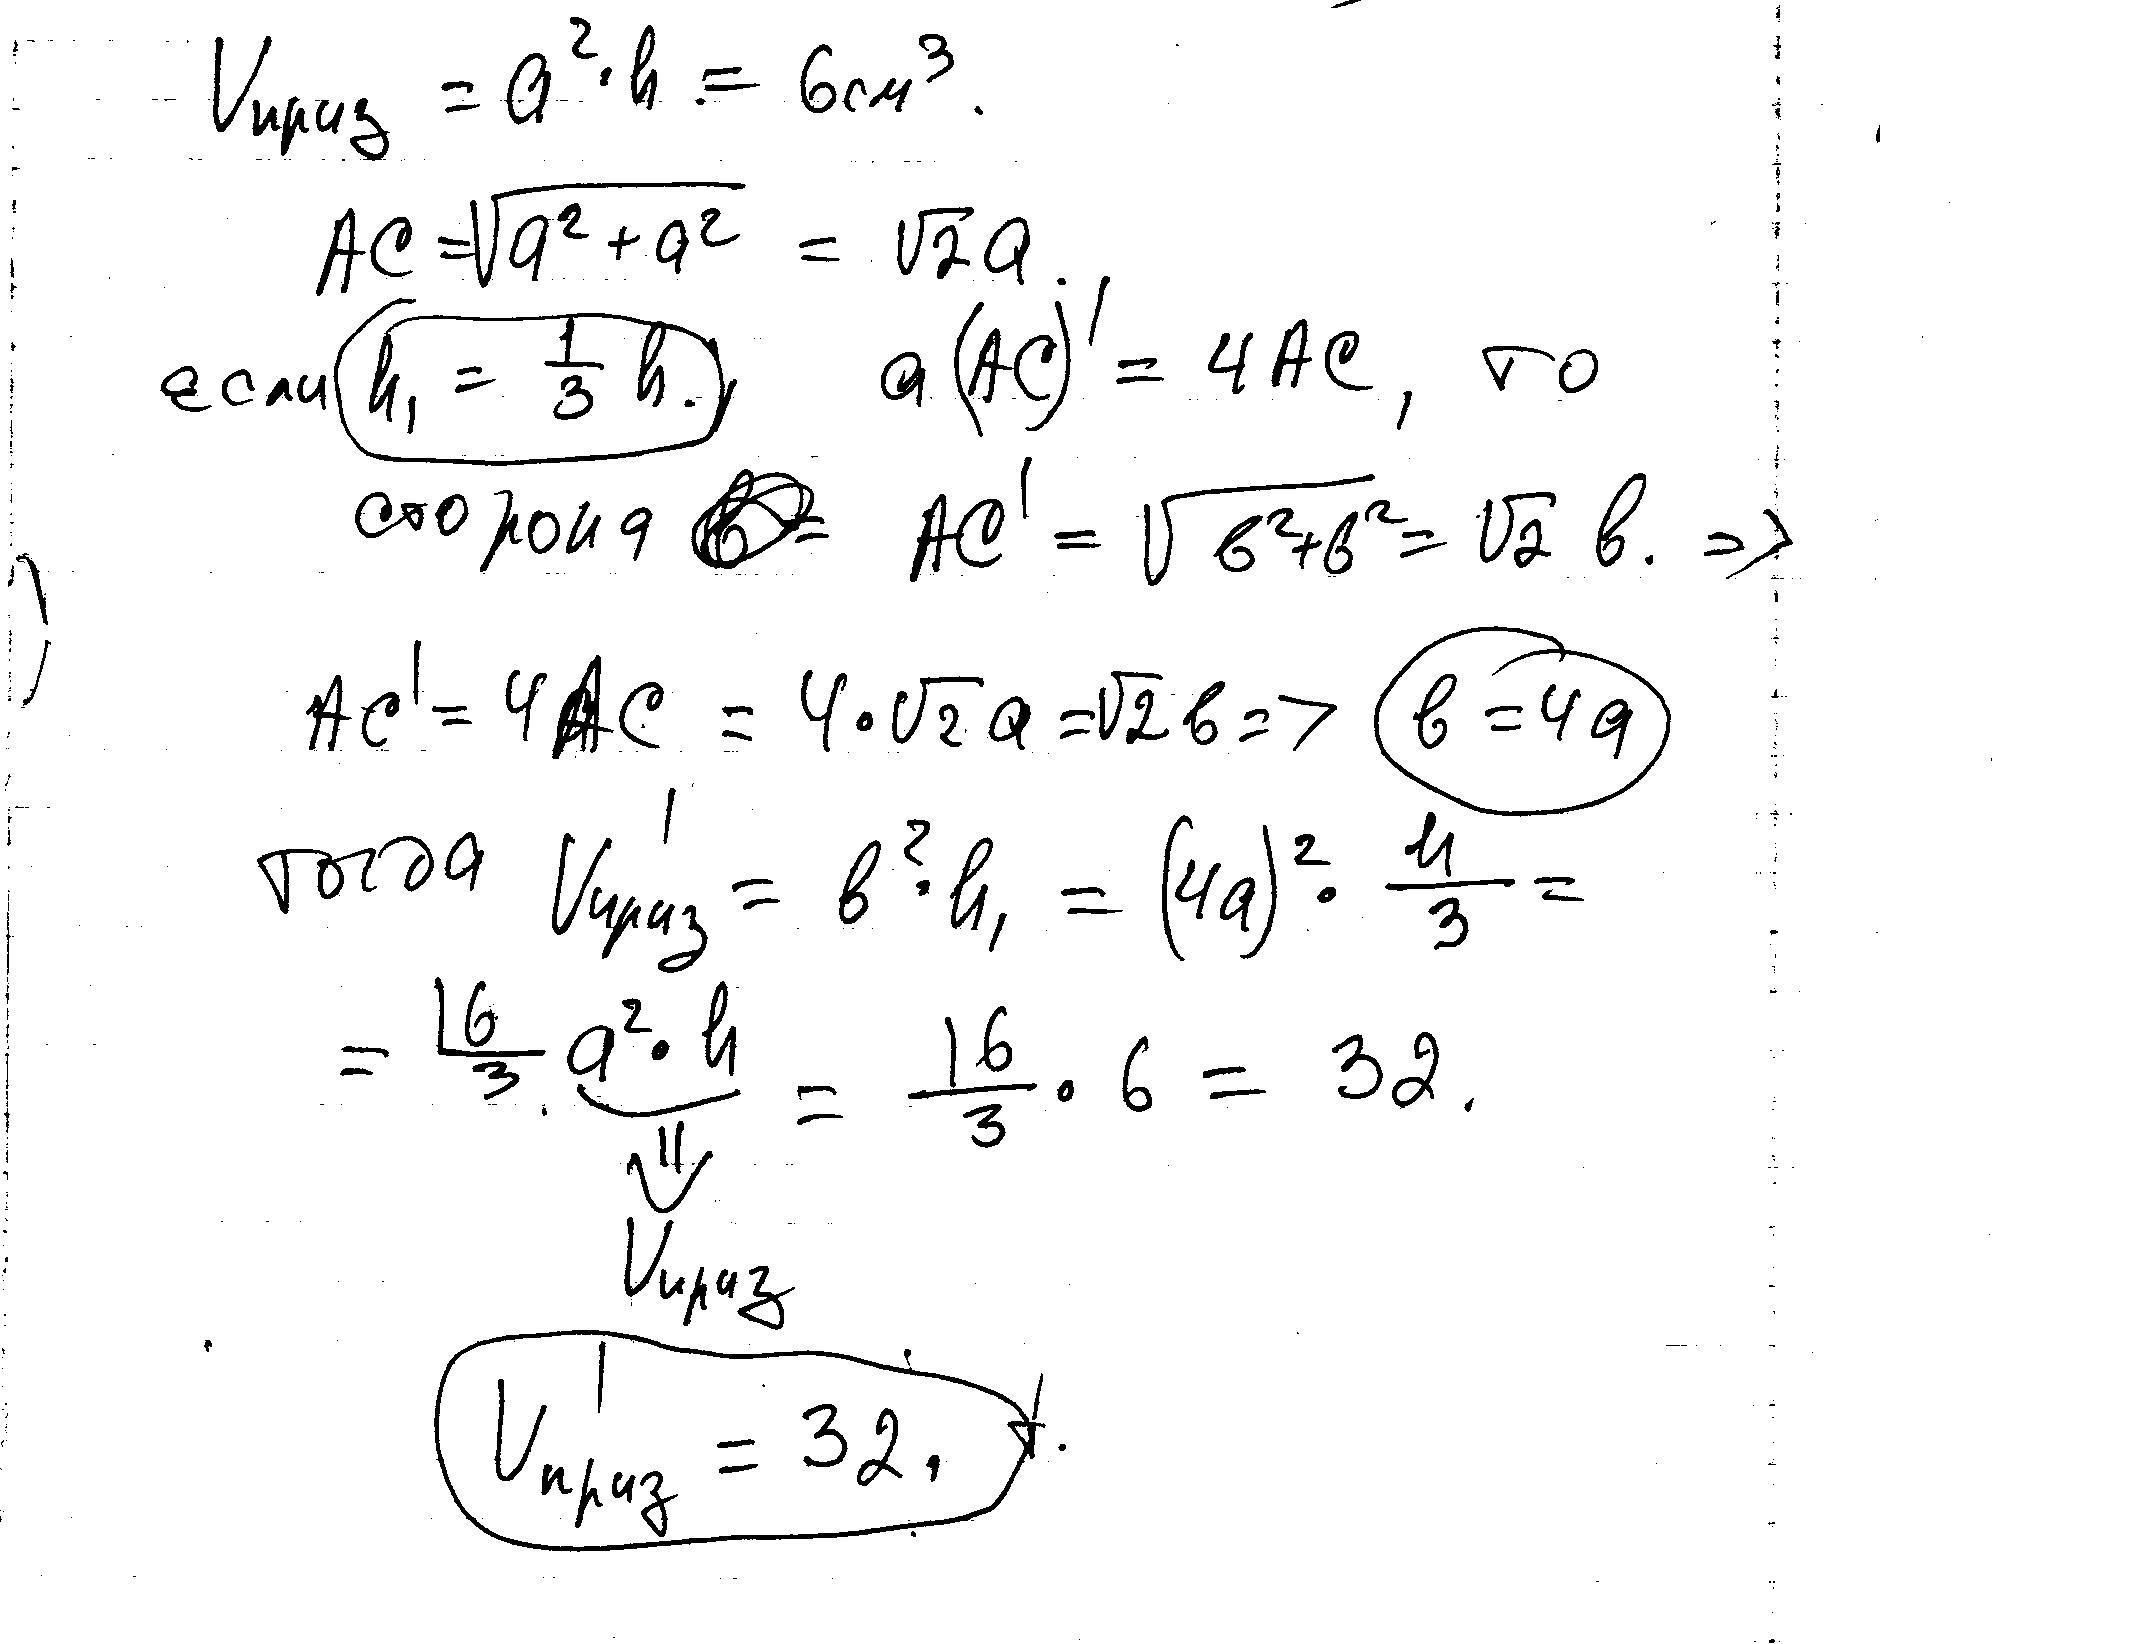 Vприз = a²·h = 6см³.
AC = √a²+a² = √2a.
если h₁ = 1/3 h., а (AC)' = 4AC, то
сторона AC' = √в²+в² = √2 в. =>
AC' = 4AC = 4·√2a = √2в => в = 4a
тогда V'приз = в²·h₁ = (4a)²·h/3 =
= 16/3 a²·h = 16/3 · 6 = 32.
Vприз
V'приз = 32.